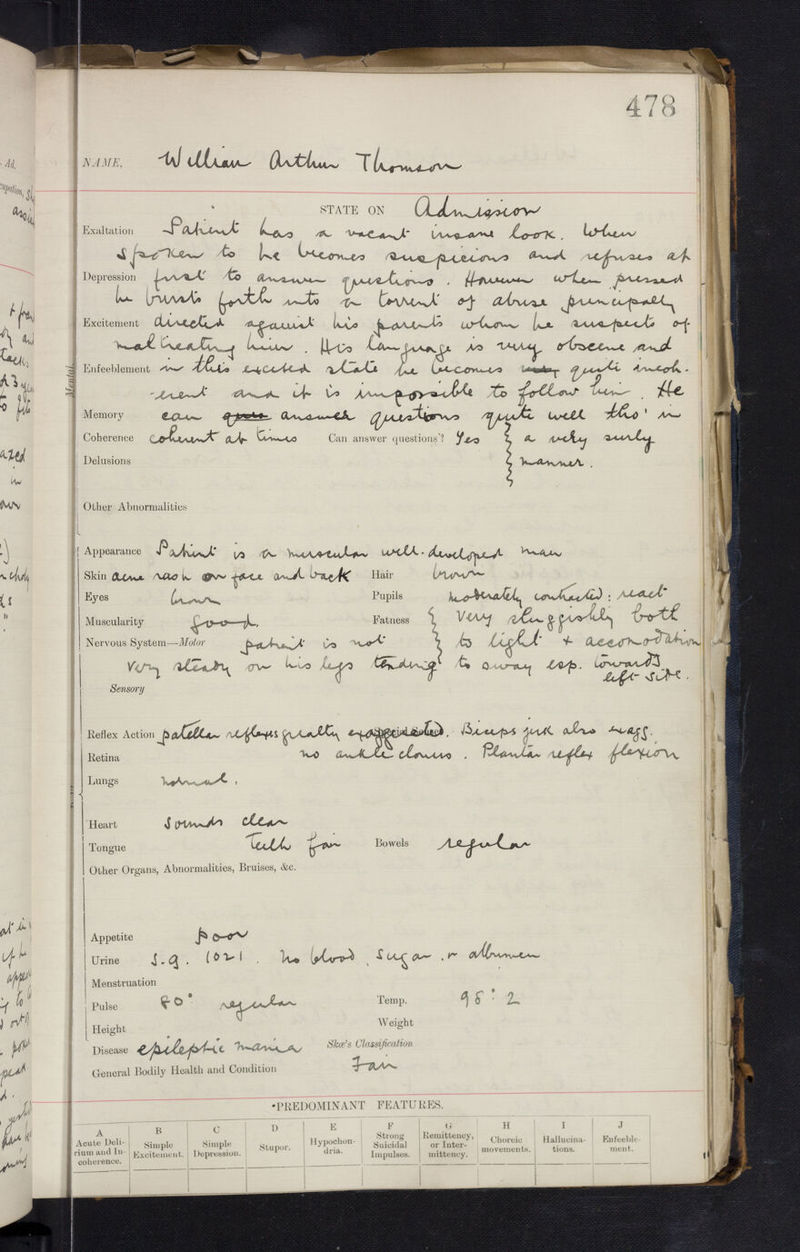 478
NAME. William Arthur Thomson
STATE ON Admission
Exaltation Patient has a vacant insane look. When
spoken to he becomes suspicious and refuses at
Depression first to answer questions. However when pressed
he bursts forth into a torrent of abuse principally
Excitement directed against his parents whom he suspects of
maltreating him. His language is very obscene and
Enfeeblement in this excited state he becomes quite incoh-
Mental.
-erent and it is impossible to follow him. He
Memory can answer questions quite well tho' in
Coherence coherent at times Can answer questions? Yes a very surly
Delusions manner.
Other Abnormalities
Appearance Patient is a muscular well-developed man
Skin acne rash on face and back Hair brown
Eyes brown Pupils moderately contracted: react
Muscularity good. Fatness very sluggishly both
Nervous System—Motor patient is not to light + accomodation
very steady on his legs tending to sway esp. towards
left side.
Sensory
Reflex Action patellar reflexes greatly exaggerated. Biceps jerk also exagg.
Retina no ankle clonus. Plantar reflex flexion
Lungs normal.
Heart sounds clear
Tongue Teeth fair Bowels regular
Other Organs, Abnormalities, Bruises, &c.
Appetite poor
Urine S.g. 1021. No blood, sugar or albumen
Menstruation
Pulse 80° regular Temp. 98°.2
Height Weight
Disease epileptic mania Skæ's Classification
General Bodily Health and Condition Fair
*PREDOMINANT FEATURES.
A B C D E F G H I J
Acute Deli- Simple Simple Stupor. Hypochon- Strong Remittency, Choreic Hallucina- Enfeeble-
rium and In- Excitement. Depression. dria. Suicidal or Inter- movements. tions. ment.
coherence. Impulses. mittency.